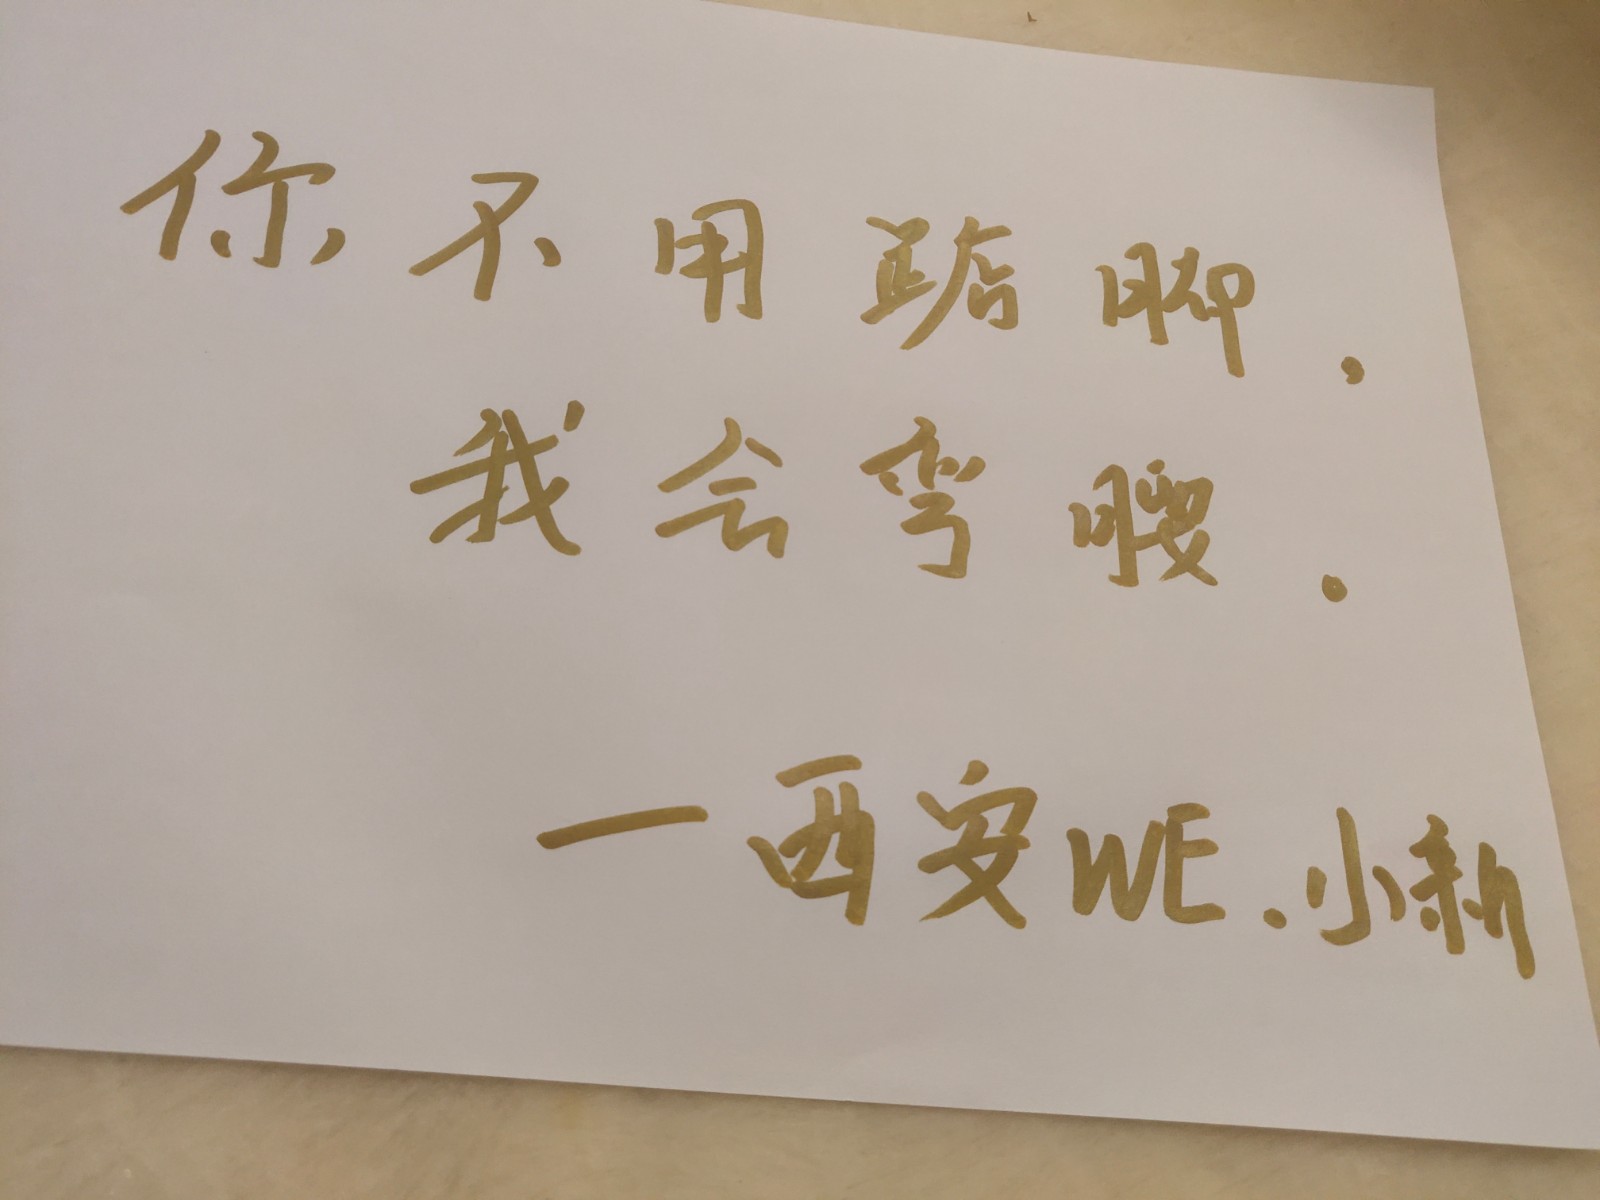 你不用踮脚.
我会弯腰.
一西安WE.小新